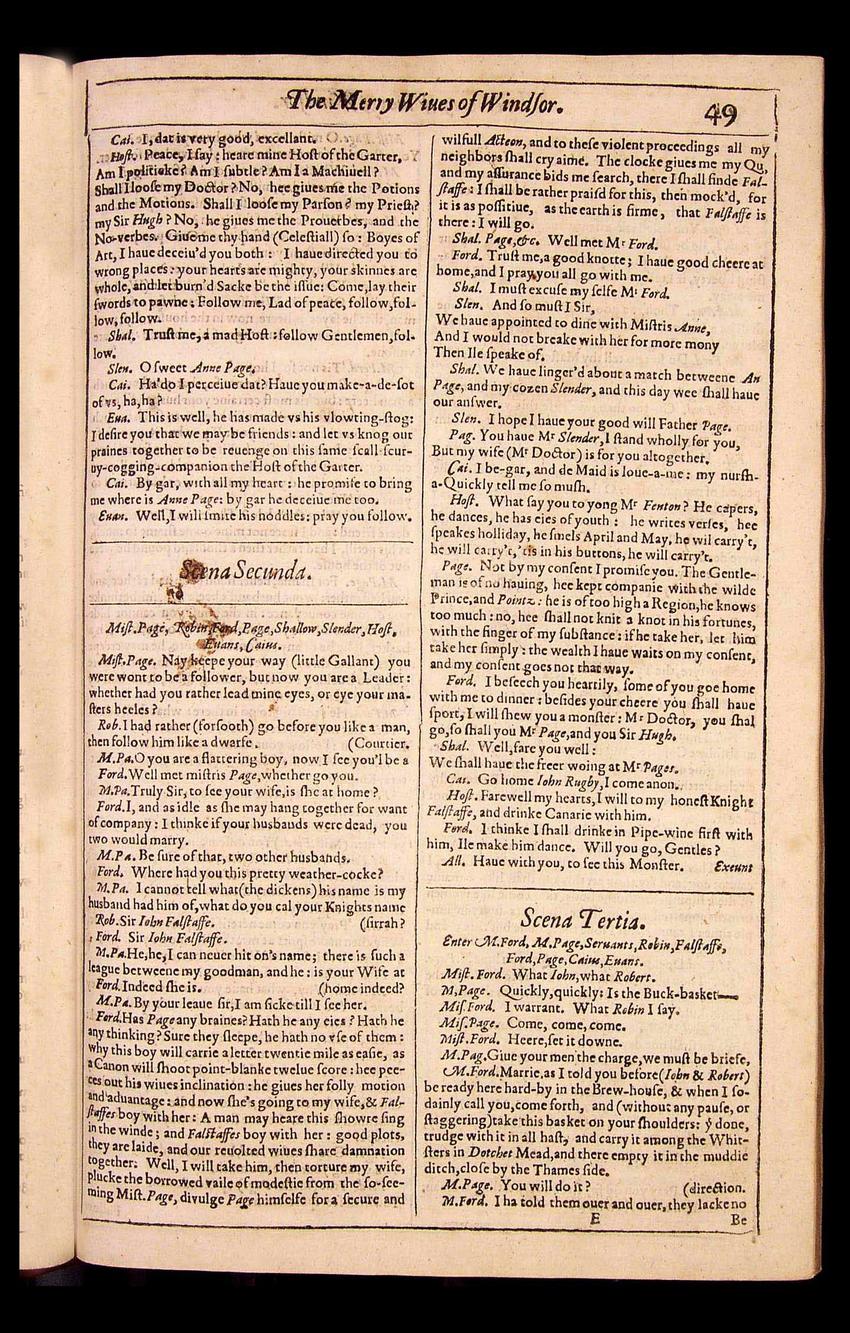 The Merry Wiues of Windſor.
49
Cai. I, dat is very good, excellant.
Hoſt. Peace, I ſay: heare mine Hoſt of the Garter,
Am I politicke? Am I ſubtle? Am I a Machiuell?
Shall I looſe my Doctor? No, hee giues me the Potions
and the Motions. Shall I looſe my Parſon? my Prieſt?
my Sir Hugh? No, he giues me the Prouerbes, and the
No-verbes. Giue me thy hand (Celeſtiall) ſo: Boyes of
Art, I haue deceiu'd you both: I haue directed you to
wrong places: your hearts are mighty, your skinnes are
whole, and let burn'd Sacke be the iſſue: Come, lay their
ſwords to pawne: Follow me, Lad of peace, follow, fol-
low, follow.
Shal. Truſt me, a mad Hoſt: follow Gentlemen, fol-
low.
Slen. O ſweet Anne Page.
Cai. Ha'do I perceiue dat? Haue you make-a-de-ſot
of vs, ha, ha?
Eua. This is well, he has made vs his vlowting-ſtog:
I deſire you that we may be friends: and let vs knog our
praines together to be reuenge on this ſame ſcall ſcur-
uy-cogging-companion the Hoſt of the Garter.
Cai. By gar, with all my heart: he promiſe to bring
me where is Anne Page: by gar he deceiue me too.
Euan. Well, I will ſmite his noddles: pray you follow.
Scena Secunda.
Miſt.Page, Robin, Ford, Page, Shallow, Slender, Hoſt,
Euans, Caius.
Miſt.Page. Nay keepe your way (little Gallant) you
were wont to be a follower, but now you are a Leader:
whether had you rather lead mine eyes, or eye your ma-
ſters heeles?
Rob. I had rather (forſooth) go before you like a man,
then follow him like a dwarfe. (Courtier.
M.Pa. O you are a flattering boy, now I ſee you'l be a
Ford. Well met miſtris Page, whether go you.
M.Pa. Truly Sir, to ſee your wife, is ſhe at home?
Ford. I, and as idle as ſhe may hang together for want
of company: I thinke if your husbands were dead, you
two would marry.
M.Pa. Be ſure of that, two other husbands.
Ford. Where had you this pretty weather-cocke?
M.Pa. I cannot tell what (the dickens) his name is my
husband had him of, what do you cal your Knights name
Rob. Sir Iohn Falſtaffe. (ſirrah?
Ford. Sir Iohn Falſtaffe.
M.Pa. He, he, I can neuer hit on's name; there is ſuch a
league betweene my goodman, and he: is your Wife at
Ford. Indeed ſhe is. (home indeed?
M.Pa. By your leaue ſir, I am ſicke till I ſee her.
Ford. Has Page any braines? Hath he any eies? Hath he
any thinking? Sure they ſleepe, he hath no vſe of them:
why this boy will carrie a letter twentie mile as eaſie, as
a Canon will ſhoot point-blanke twelue ſcore: hee pee-
ces out his wiues inclination: he giues her folly motion
and aduantage: and now ſhe's going to my wife, & Fal-
ſtaffes boy with her: A man may heare this ſhowre ſing
in the winde; and Falſtaffes boy with her: good plots,
they are laide, and our reuolted wiues ſhare damnation
together. Well, I will take him, then torture my wife,
plucke the borrowed vaile of modeſtie from the ſo-ſee-
ming Miſt. Page, divulge Page himſelfe for a ſecure and
wilfull Acteon, and to theſe violent proceedings all my
neighbors ſhall cry aime. The clocke giues me my Qu,
and my aſſurance bids me ſearch, there I ſhall finde Fal-
ſtaffe: I ſhall be rather praiſd for this, then mock'd, for
it is as poſſitiue, as the earth is firme, that Falſtaffe is
there: I will go.
Shal. Page, &c. Well met Mr Ford.
Ford. Truſt me, a good knotte; I haue good cheere at
home, and I pray you all go with me.
Shal. I muſt excuſe my ſelfe Mr Ford.
Slen. And ſo muſt I Sir,
We haue appointed to dine with Miſtris Anne,
And I would not breake with her for more mony
Then Ile ſpeake of.
Shal. We haue linger'd about a match betweene An
Page, and my cozen Slender, and this day wee ſhall haue
our anſwer.
Slen. I hope I haue your good will Father Page.
Pag. You haue Mr Slender, I ſtand wholly for you,
But my wife (Mr Doctor) is for you altogether.
Cai. I be-gar, and de Maid is loue-a-me: my nurſh-
a-Quickly tell me ſo muſh.
Hoſt. What ſay you to yong Mr Fenton? He capers,
he dances, he has eies of youth: he writes verſes, hee
ſpeakes holliday, he ſmels April and May, he wil carry't,
he will carry't, 'tis in his buttons, he will carry't.
Page. Not by my conſent I promiſe you. The Gentle-
man is of no hauing, hee kept companie with the wilde
Prince, and Pointz: he is of too high a Region, he knows
too much: no, hee ſhall not knit a knot in his fortunes,
with the finger of my ſubſtance: if he take her, let him
take her ſimply: the wealth I haue waits on my conſent,
and my conſent goes not that way.
Ford. I beſeech you heartily, ſome of you goe home
with me to dinner: beſides your cheere you ſhall haue
ſport, I will ſhew you a monſter: Mr Doctor, you ſhal
go, ſo ſhall you Mr Page, and you Sir Hugh.
Shal. Well, fare you well:
We ſhall haue the freer woing at Mr Pages.
Cai. Go home Iohn Rugby, I come anon.
Hoſt. Farewell my hearts, I will to my honeſt Knight
Falſtaffe, and drinke Canarie with him.
Ford. I thinke I ſhall drinke in Pipe-wine firſt with
him, Ile make him dance. Will you go, Gentles?
All. Haue with you, to ſee this Monſter. Exeunt
Scena Tertia.
Enter M.Ford, M.Page, Seruants, Robin, Falſtaffe,
Ford, Page, Caius, Euans.
Miſt.Ford. What Iohn, what Robert.
M.Page. Quickly, quickly: Is the Buck-basket—
Miſ.Ford. I warrant. What Robin I ſay.
Miſ.Page. Come, come, come.
Miſt.Ford. Heere, ſet it downe.
M.Pag. Giue your men the charge, we muſt be briefe.
M.Ford. Marrie, as I told you before (Iohn & Robert)
be ready here hard-by in the Brew-houſe, & when I ſo-
dainly call you, come forth, and (without any pauſe, or
ſtaggering) take this basket on your ſhoulders: ẏ done,
trudge with it in all haſt, and carry it among the Whit-
ſters in Dotchet Mead, and there empty it in the muddie
ditch, cloſe by the Thames ſide.
M.Page. You will do it? (direction.
M.Ford. I ha told them ouer and ouer, they lacke no
E
Be